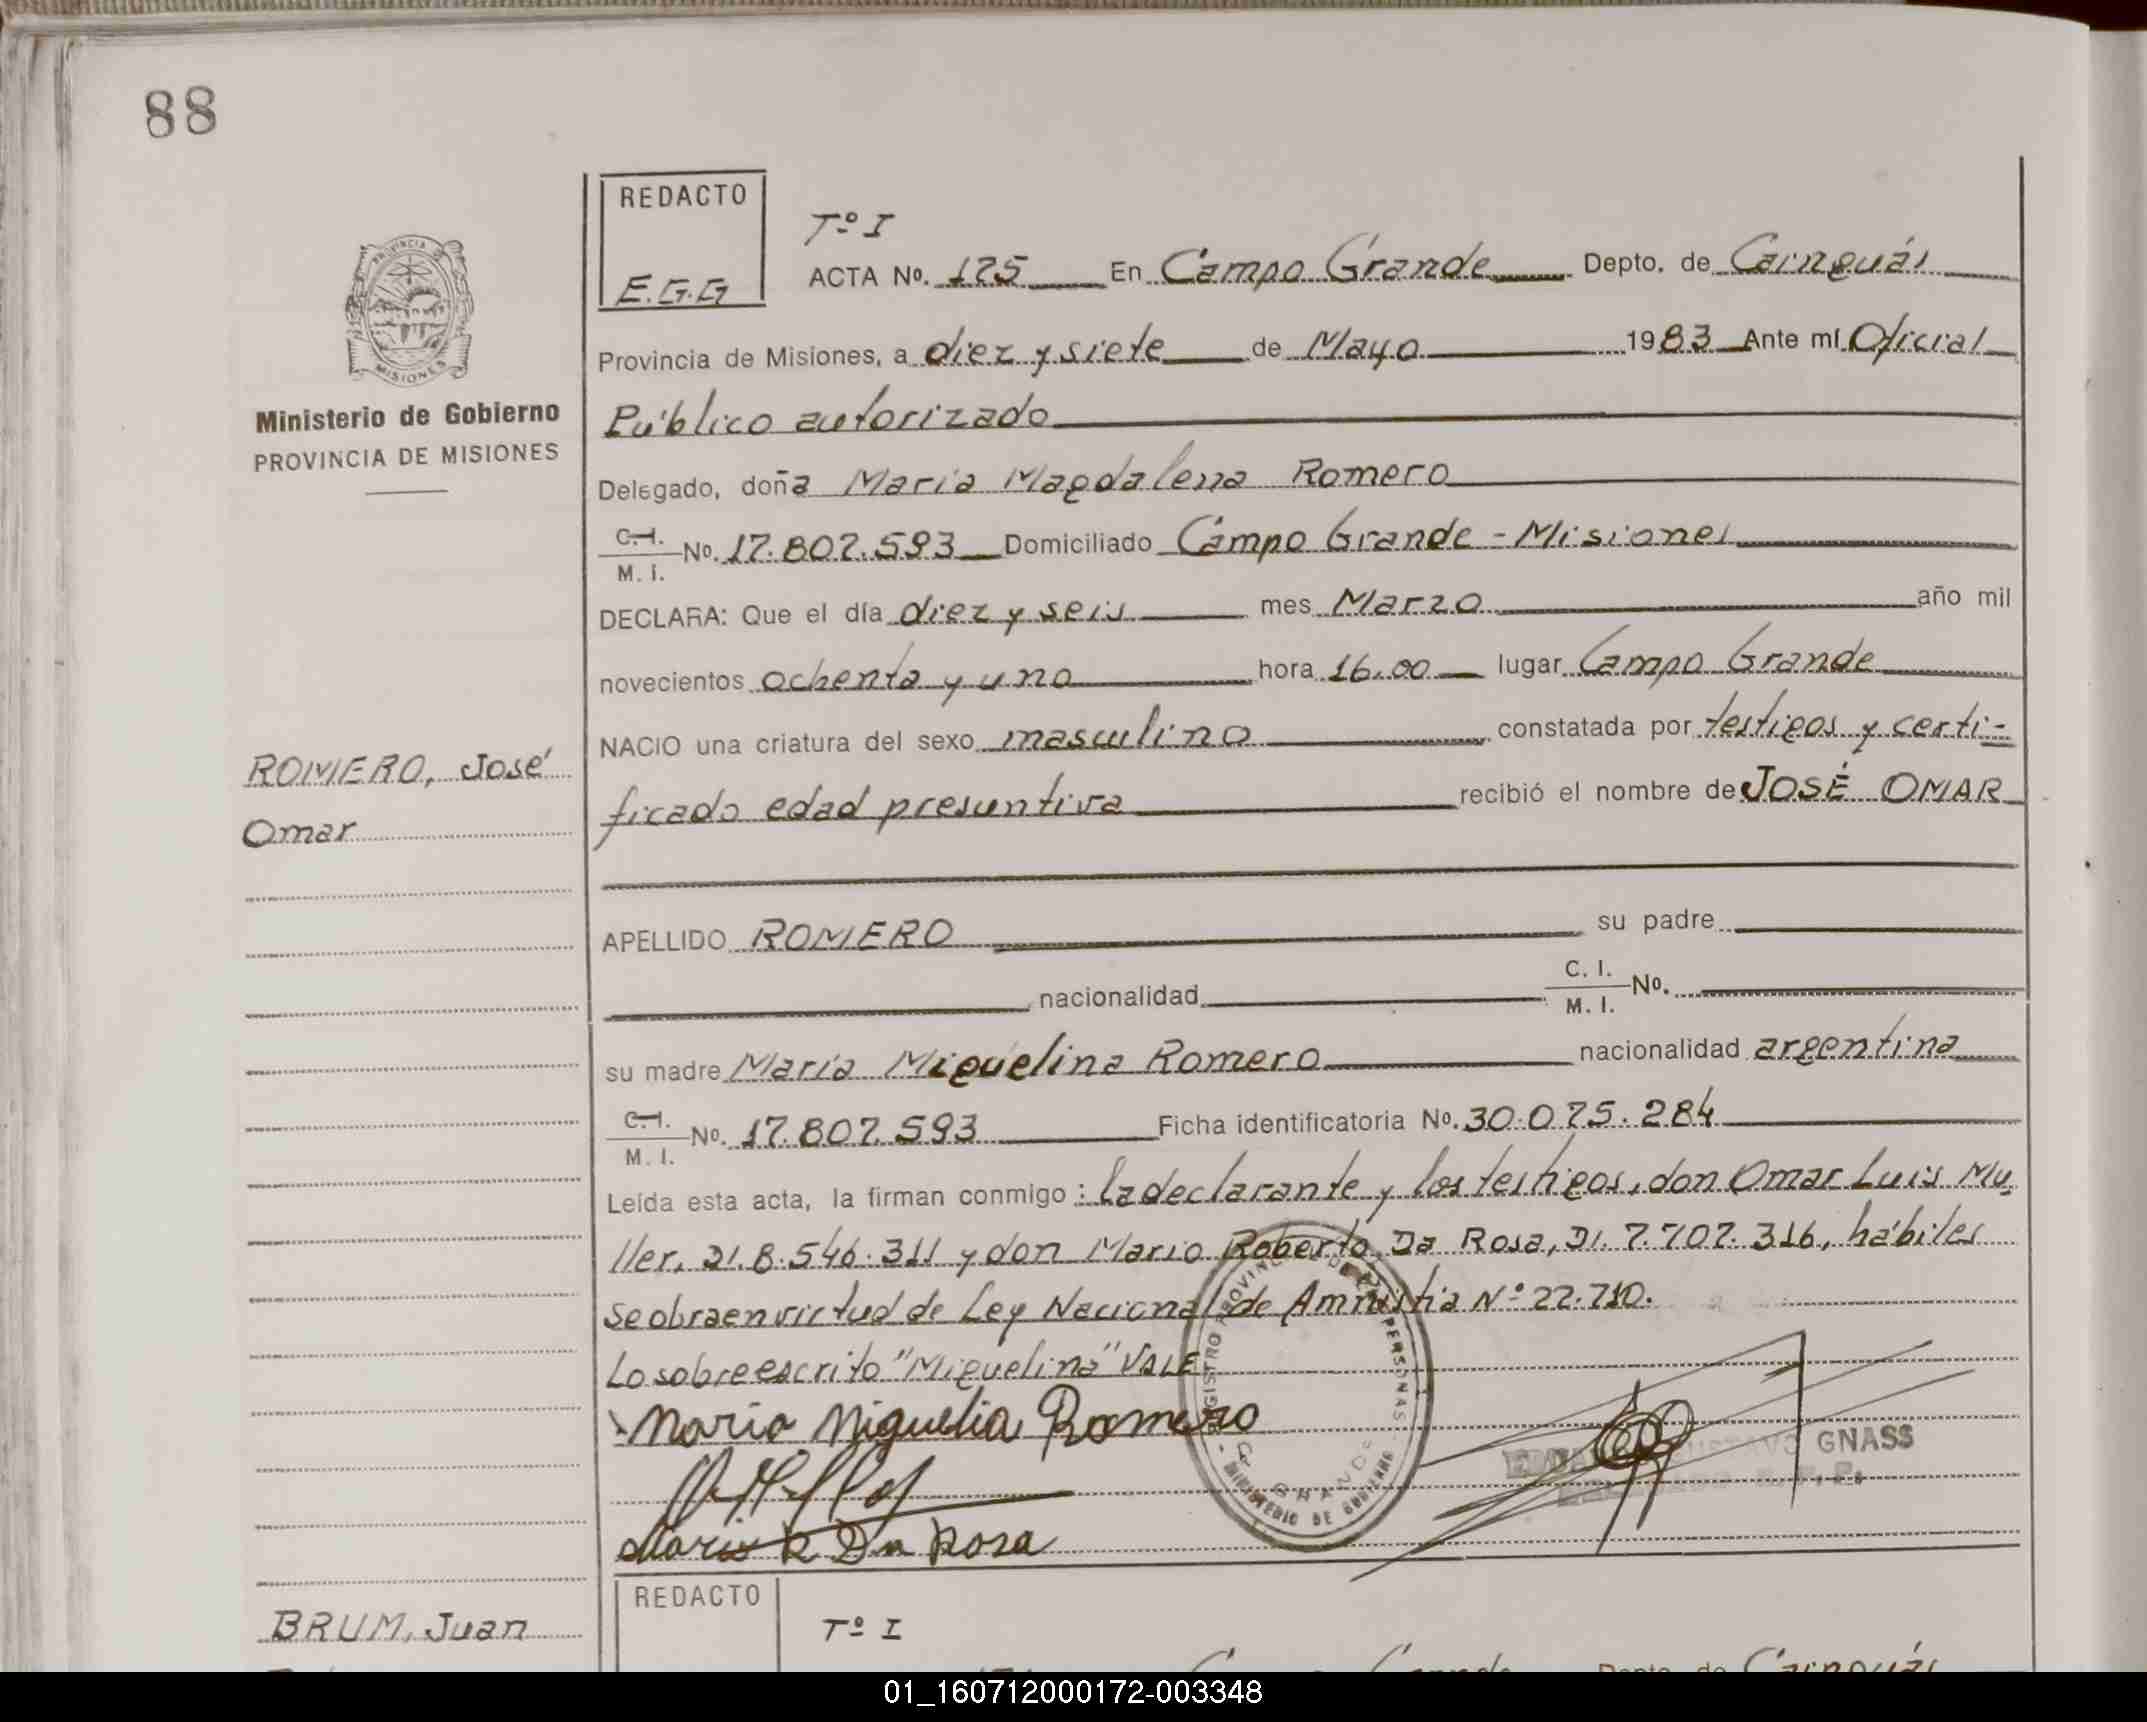 88
REDACTO
E.G.G
Tº I
ACTA Nº. 175 En Campo Grande Depto. de Cainguás
Provincia de Misiones, a diez y siete de Mayo 1983 Ante mí Oficial
Público autorizado
Delegado, doña María Magdalena Romero
C.I.
M. I. Nº. 17.807.593 Domiciliado Campo Grande - Misiones
DECLARA: Que el día diez y seis mes Marzo año mil
novecientos ochenta y uno hora 16,00 lugar Campo Grande
NACIO una criatura del sexo masculino constatada por testigos y certi-
ficado edad presuntiva recibió el nombre de JOSÉ OMAR
APELLIDO ROMERO su padre
nacionalidad C. I.
M. I. Nº.
su madre María Miguelina Romero nacionalidad argentina
C.I.
M. I. Nº. 17.807.593 Ficha identificatoria Nº. 30.075.284
Leída esta acta, la firman conmigo: la declarante y los testigos, don Omar Luis Mu-
ller, DI. 8.546.311 y don Mario Roberto Da Rosa, DI. 7.707.316, hábiles
Se obra en virtud de Ley Nacional de Amnistia Nº 22.710.
Lo sobreescrito "Miguelina" VALE
Maria Miguelia Romero
Mario R Da Rosa
GNASS
REGISTRO PROVINCIAL DE LAS PERSONAS
C. GRANDE
MINISTERIO DE GOBIERNO
PROVINCIA
MISIONES
Ministerio de Gobierno
PROVINCIA DE MISIONES
ROMERO, José
Omar
BRUM, Juan
REDACTO
Tº I
Depto. de Cainguás
01_160712000172-003348